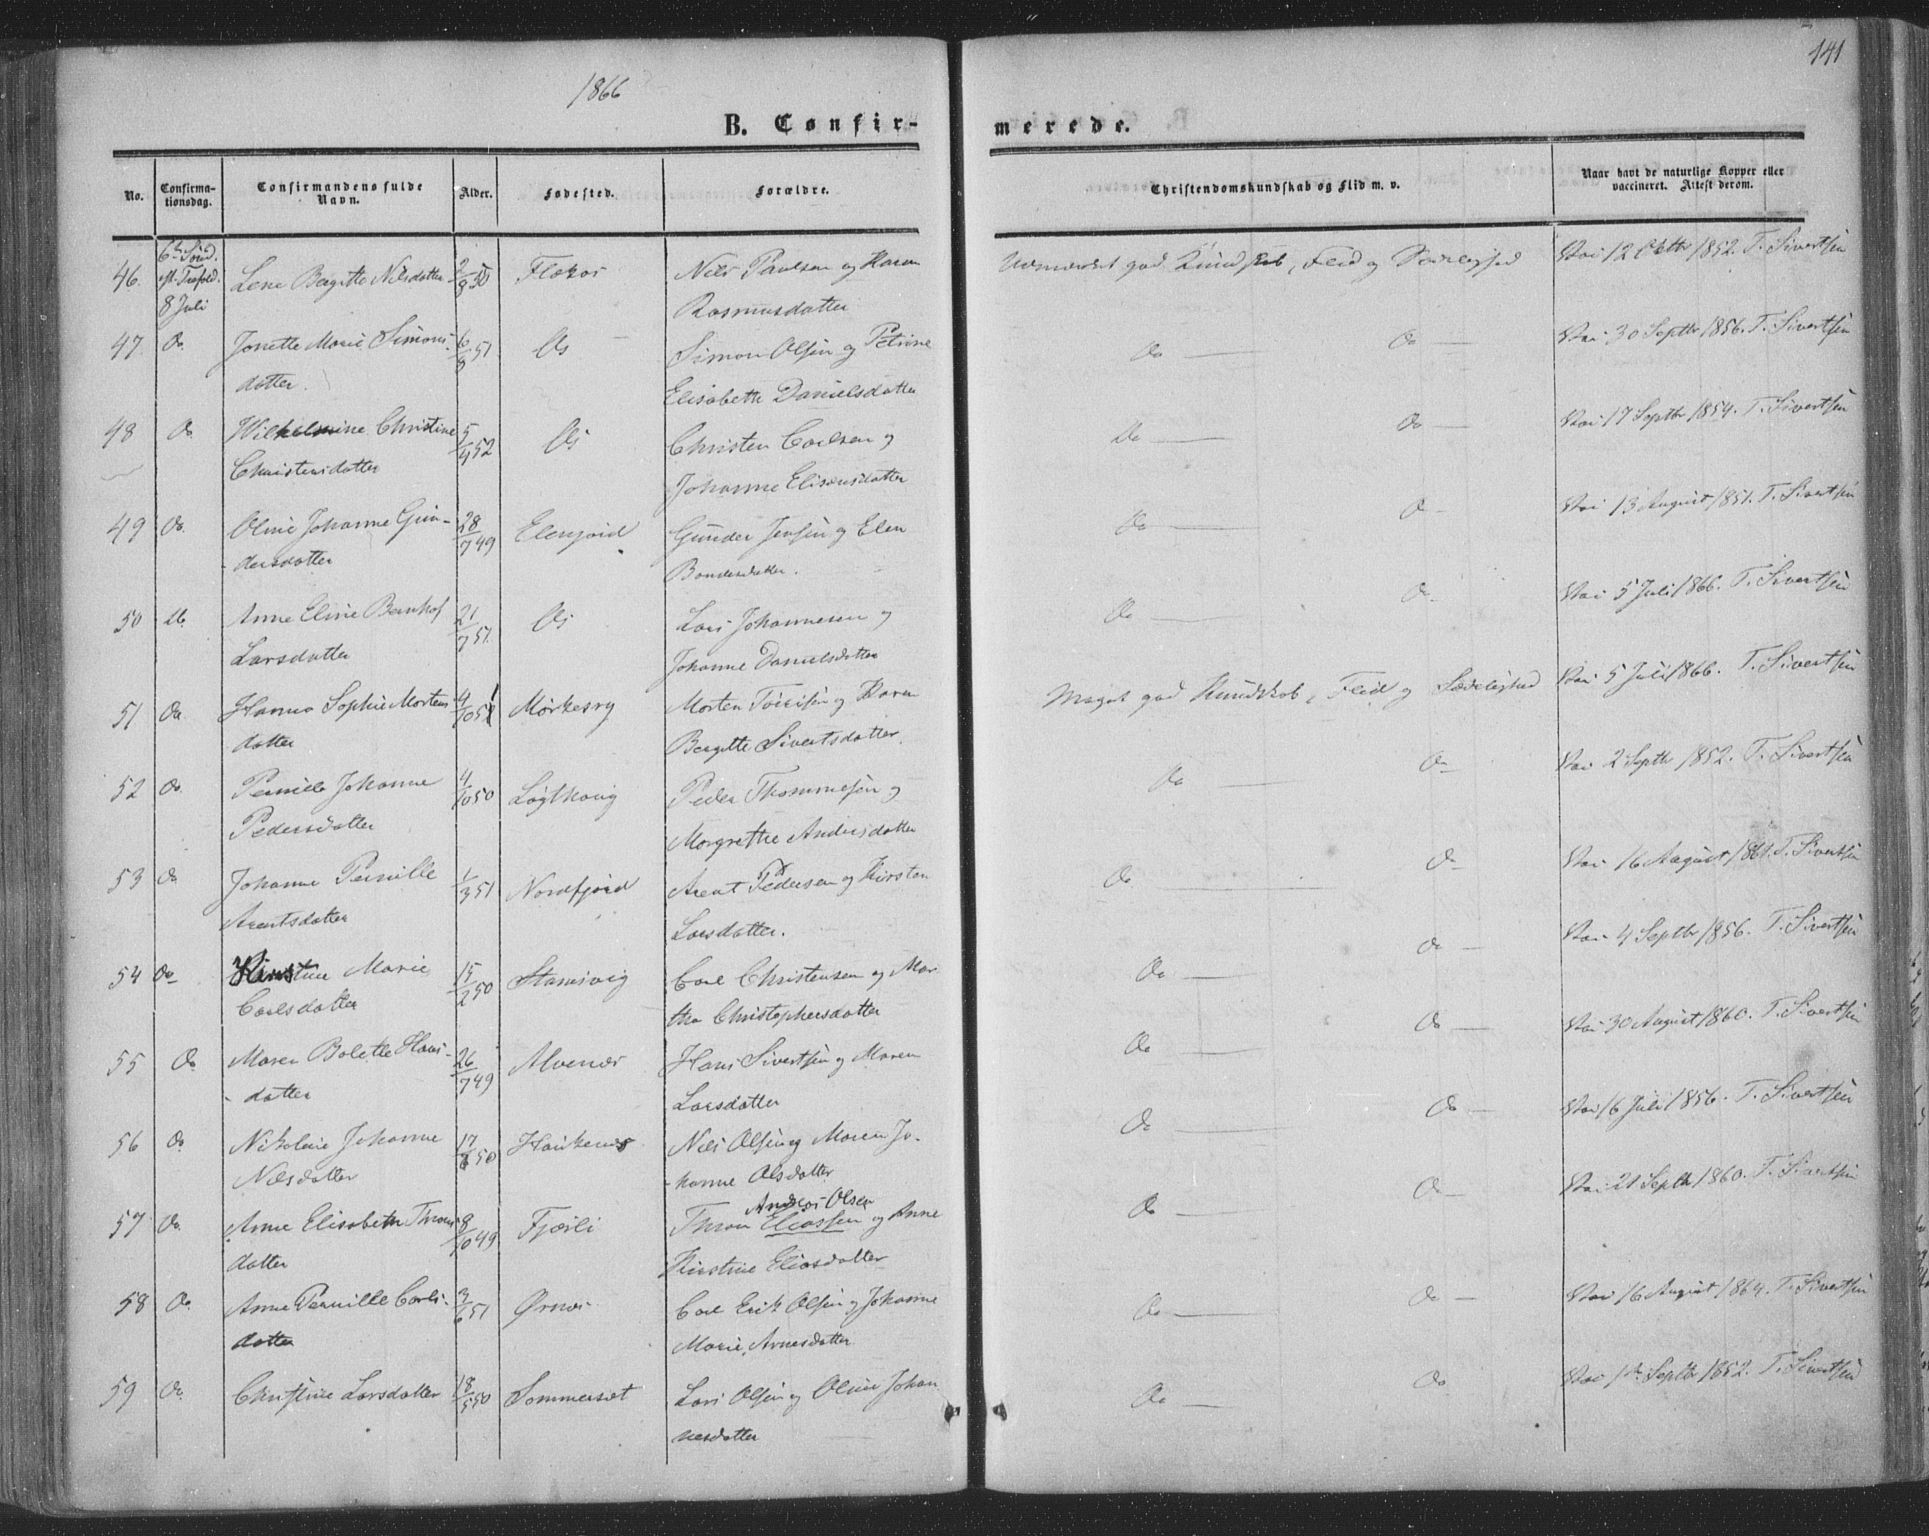 141
1866
B. Confir-
merede.
No.
Confirma-
tionsdag.
Confirmandens fulde
Navn.
Alder.
Fødested.
Forældre.
Christendomskundskab og Flid m. v.
Naar havt de naturlige Kopper eller
vaccineret. Attest derom.
46 6te Sønd. eft. Trefold. 8 Juli Lene Bergitte Nilsdatter 2/8 50 Flekos Nils Paulsen og Karen
Rasmusdatter
Udmærket god Kundskab, Flid og Sædelighed Vac. 12 Oktbr 1852. T. Sivertsen
47 Do Jonette Marie Simons- 6/8 51 Os Simon Olsen og Petrine
datter. Elisabeth Danielsdatter
Do Do Vac. 30 Septbr 1856. T. Sivertsen
48 Do Wilhelmine Christine 5/4 52 Os Christen Carlsen og
Christensdatter Johanne Eliseusdatter
Do Do Vac. 17 Septbr 1854. T. Sivertsen
49 Do Oline Johanne Gun- 28/7 49 Elenjord Gunder Jensen og Elen
dersdatter Bendesdatter.
Do Do Vac. 13 August 1851. T. Sivertsen
50 Do Anne Eline Larsdatter 21/7 51. Os Lars Johannesen og
Johanne Danielsdatter
Do Do Vac. 5 Juli 1866. T. Sivertsen
51 Do Hanna Sophie Mortens 4/10 51 Mørkesry Morten Toresen og Karen
datter Bergitte Sivertsdatter.
Meget god Kundskab, Flid og Sædelighed Vac. 5 Juli 1866. T. Sivertsen
52 Do Pernille Johanne 4/10 50 Løgthavig Peder Thommesen og
Pedersdatter Margrethe Andersdatter
Do Do Vac. 2 Septbr 1852. T. Sivertsen
53 Do Johanne Pernille 1/3 51 Nordfjord Arent Pedersen og Kirsten
Arentsdatter Larsdatter.
Do Do Vac. 16 August 1861. T. Sivertsen
54 Do Kirstine Marie 15/2 50 Stamsvig Carl Christensen og Mar
Carlsdatter tha Christophersdatter
Do Do Vac. 4 Septbr 1856. T. Sivertsen
55 Do Maren Bolette Hans- 26/7 49 Alvenes Hans Sivertsen og Maren
datter Larsdatter
Do Do Vac. 30 August 1860. T. Sivertsen
56 Do Nikoline Johanne 17/6 50 Haukenes Nils Olsen og Maren Jo-
Nilsdatter hanne Olsdatter
Do Do Vac. 16 Juli 1856. T. Sivertsen
Andreas Olsen
57 Do Anne Elisabeth Throns- 8/10 49 Fjærli Thron Eliassen og Anne
datter Kirstine Eliasdatter
Do Do Vac. 21 Septbr 1860. T. Sivertsen
58 Do Anne Pernille Carls- 3/6 51 Ørnes Carl Erik Olsen og Johanne
datter Marie Arnesdatter
Do Do Vac. 16 August 1864. T. Sivertsen
59 Do Christine Larsdatter 18/5 50 Sommerset Lars Olsen og Oline Johan
nesdatter
Do Do Vac. 1ste Septbr 1852. T. Sivertsen